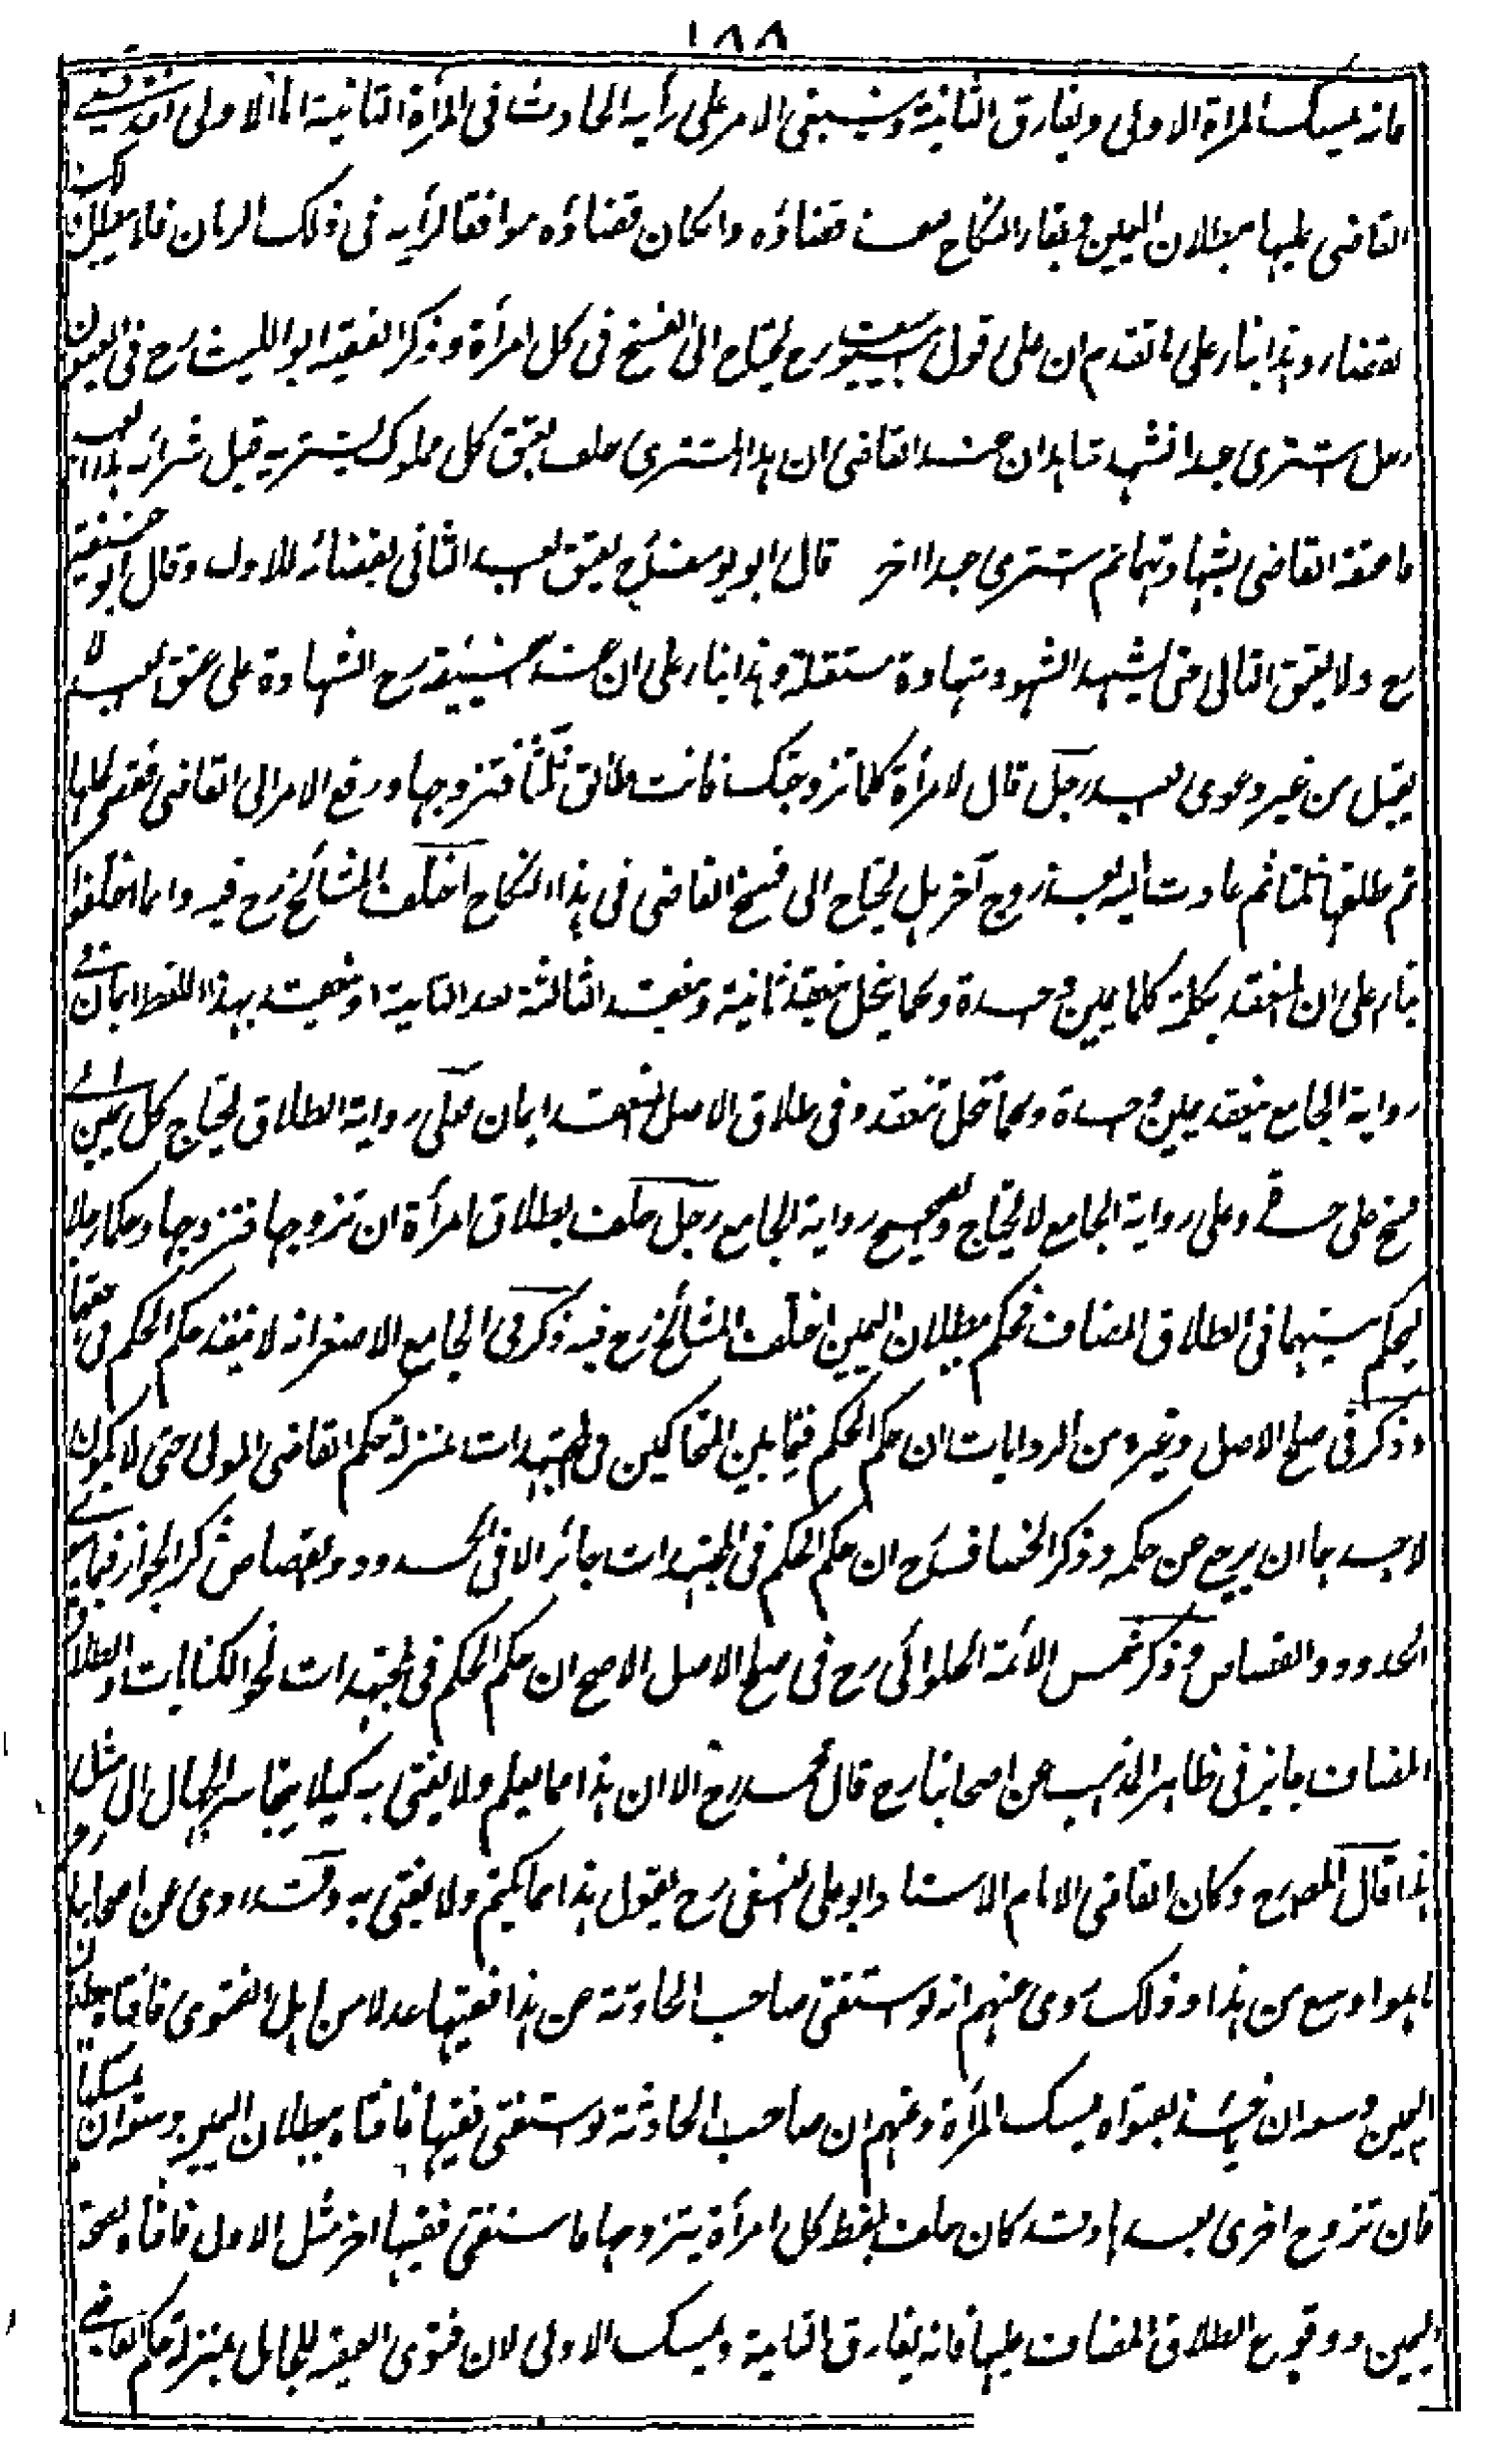 ١٨٨
فانه يمسك المرأة الاولى ويفارق الثانية وينبنى الامر على رأيه الحادث فى المرأة الثانية اما الاولى فقد قضى
القاضى عليها ببطلان اليمين وبقاء النكاح قضاؤه وانكان قضاؤه موافقا لرأيه فى ذلك الزمان فلا يبطل ذلك
القضاء وهذا بناء على ما تقدم ان على قول ابيوسف رح يحتاج الى الفسخ فى كل امرأة وذكر الفقيه ابو الليث رح فى العيون
رجل اشترى عبدا فشهد شاهدان عند القاضى ان هذا المشترى حلف بعتق كل مملوك يشتريه قبل شرائه هذا العبد
فاعتقه القاضى بشهادتهما ثم اشترى عبدا اخر قال ابو يوسف رح يعتق العبد الثانى بقضائه للاول وقال ابو حنيفة
رح ولا يعتق الثانى حتى يشهد الشهود شهادة مستقلة وهذا بناء على ان عند ابيحنيفة رح الشهادة على عتق العبد لا
يقبل من غير دعوى العبد رجل قال لامرأة كلما تزوجتك فانت طالق ثلثا فتزوجها ورفع الامر الى القاضى فقضى بحلها
ثم طلقها ثلثا ثم عادت اليه بعد زوج آخر هل يحتاج الى فسخ القاضى فى هذا النكاح اختلف المشائخ رح فيه وانما اختلفوا
بناء على ان المنعقد بكلمة كلما يمين واحدة وكما ينحل ينعقد ثانية وينعقد الثالثة بعد الثانية او ينعقد بهذا اللفظ ايمان فى
رواية الجامع ينعقد يمين واحدة وكما تنحل تنعقد وفى طلاق الاصل تنعقد ايمان فعلى رواية الطلاق يحتاج كل يمين الى
فسخ على حدة وعلى رواية الجامع لا يحتاج والصحيح رواية الجامع رجل حلف بطلاق امرأة ان تزوجها فتزوجها وحكما رجلا
ليحكم بينهما فى الطلاق المضاف فحكم ببطلان اليمين اختلف المشائخ رح فيه ذكر فى الجامع الاصغر انه لا ينفذ حكم الحكم فى حقهما
وذكر فى صلح الاصل وغيره من الروايات ان حكم الحكم فيما بين المتحاكمين فى المجتهدات بمنزلة حكم القاضى المولى حتى لا يكون
لاحدهما ان يرجع عن حكمه وذكر الخصاف رح ان حكم الحكم فى المجتهدات جائز الا فى الحدود والقصاص ذكر الجواز فيما سوى
الحدود والقصاص وذكر شمس الائمة الحلوائى رح فى صلح الاصل الاصح ان حكم الحكم فى المجتهدات نحو الكنايات والطلاق
المضاف جايز فى ظاهر المذهب عن اصحابنا رح قال محمد رح الا ان هذا مما يعلم ولا يفتى به كيلا يتجاسر الجهال الى مثل
هذا قال المصرح وكان القاضى الامام الاستاد ابو على النسفى رح يقول هذا مما يكتم ولا يفتى به وقد روى عن اصحابنا
ما هو اوسع من هذا وذلك روى عنهم انه لو استفتى صاحب الحادثة عن هذا فقيها عدلا من اهل الفتوى فافتاه ببطلان
اليمين وسعه ان ياخذ بفتواه ويمسك المرأة وعنهم ان صاحب الحادثة لو استفتى فقيها فافتاه ببطلان اليمين وسعه ان يمسكها
فان تزوج اخرى بعدها وقد كان حلف بلفظ كل امرأة يتزوجها فاستفتى فقيها اخر مثل الاول فافتاه بصحة
اليمين ووقوع الطلاق المضاف عليها فانه يفارق الثانية ويمسك الاولى لان فتوى الفقيه للجاهل بمنزلة حكم القاضى